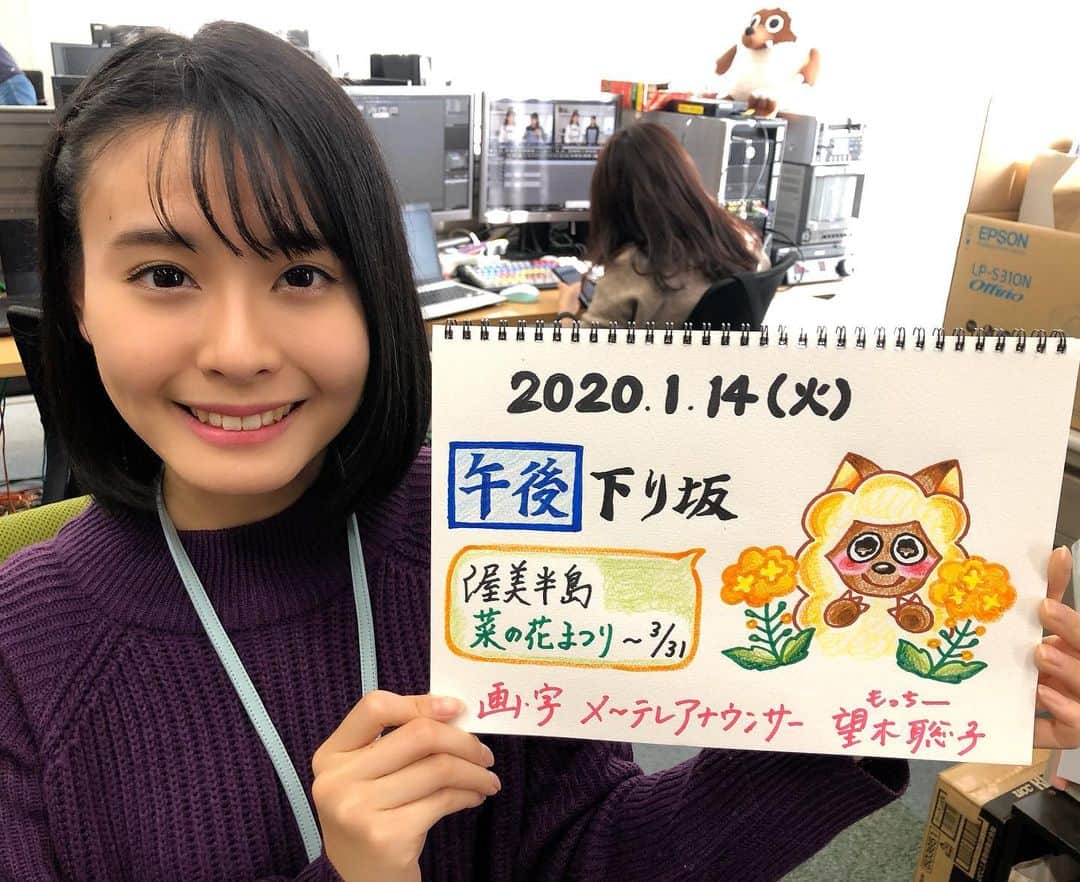 2020.1.14(火)
午後 下り坂
渥美半島
菜の花まつり ~3/31
画・字 メ~テレアナウンサー 望木聡子
もっちー
EPSON
LP-S310N
Offirio